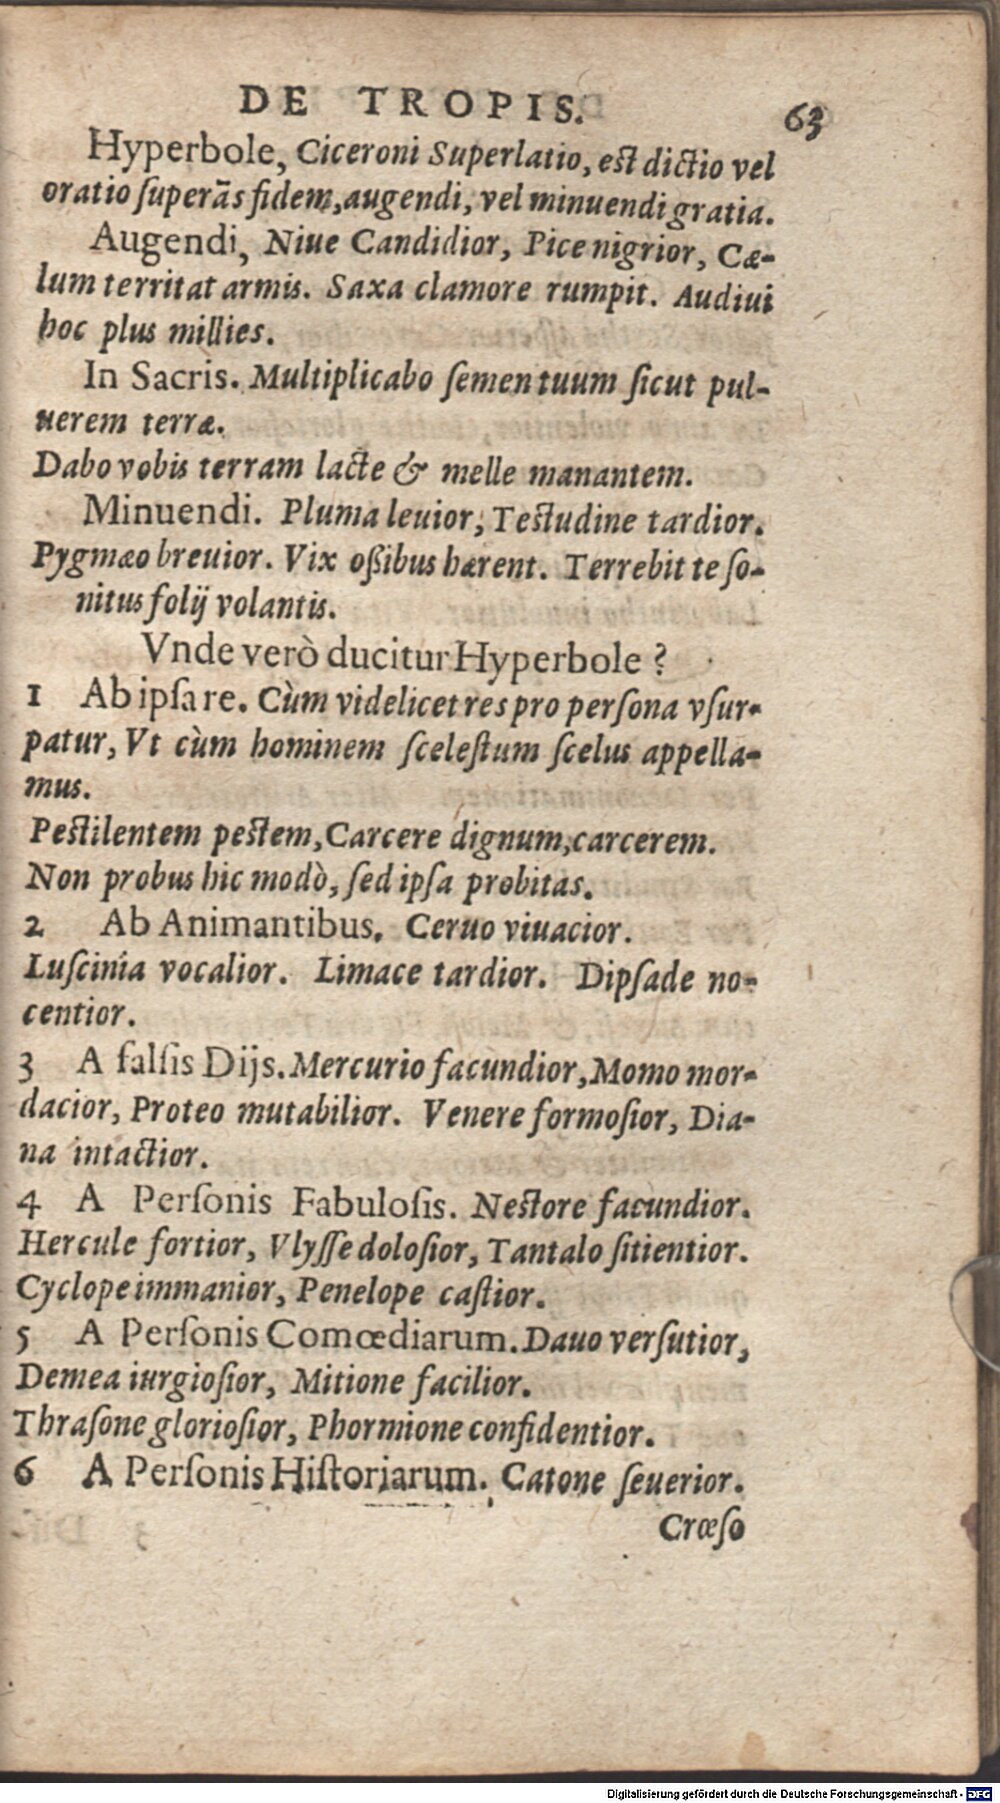 DE TROPIS. 63
Hyperbole, Ciceroni Superlatio, est dictio vel
oratio ſuperãs fidem, augendi, vel minuendi gratia.
Augendi, Niue Candidior, Pice nigrior, Cæ-
lum territat armis. Saxa clamore rumpit. Audiui
hoc plus millies.
In Sacris. Multiplicabo ſemen tuum ſicut pul-
uerem terræ.
Dabo vobis terram lacte & melle manantem.
Minuendi. Pluma leuior, Testudine tardior.
Pygmæo breuior. Vix oßibus hærent. Terrebit te ſo-
nitus folij volantis.
Vnde verò ducitur Hyperbole ?
1 Ab ipſa re. Cùm videlicet res pro perſona vſur-
patur, Vt cùm hominem ſceleſtum ſcelus appella-
mus.
Pestilentem pestem, Carcere dignum, carcerem.
Non probus hic modò, ſed ipſa probitas.
2 Ab Animantibus. Ceruo viuacior.
Luſcinia vocalior. Limace tardior. Dipſade no-
centior.
3 A falſis Dijs. Mercurio facundior, Momo mor-
dacior, Proteo mutabilior. Venere formoſior, Dia-
na intactior.
4 A Perſonis Fabuloſis. Nestore facundior.
Hercule fortior, Vlyſſe doloſior, Tantalo ſitientior.
Cyclope immanior, Penelope caſtior.
5 A Perſonis Comœdiarum. Dauo verſutior,
Demea iurgioſior, Mitione facilior.
Thraſone glorioſior, Phormione confidentior.
6 A Perſonis Hiſtoriarum. Catone ſeuerior.
Crœſo
Digitalisierung gefördert durch die Deutsche Forschungsgemeinschaft - DFG